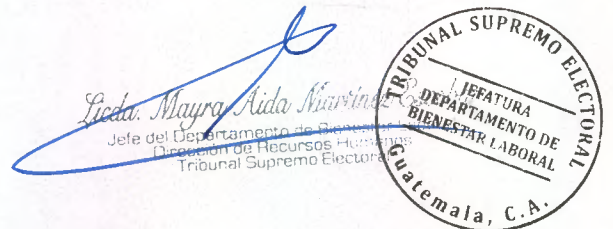 Licda. Mayra Aida Martínez
Jefe del Departamento de Bienestar
Dirección de Recursos Humanos
Tribunal Supremo Electoral
TRIBUNAL SUPREMO ELECTORAL
JEFATURA
DEPARTAMENTO DE
BIENESTAR LABORAL
Guatemala, C.A.